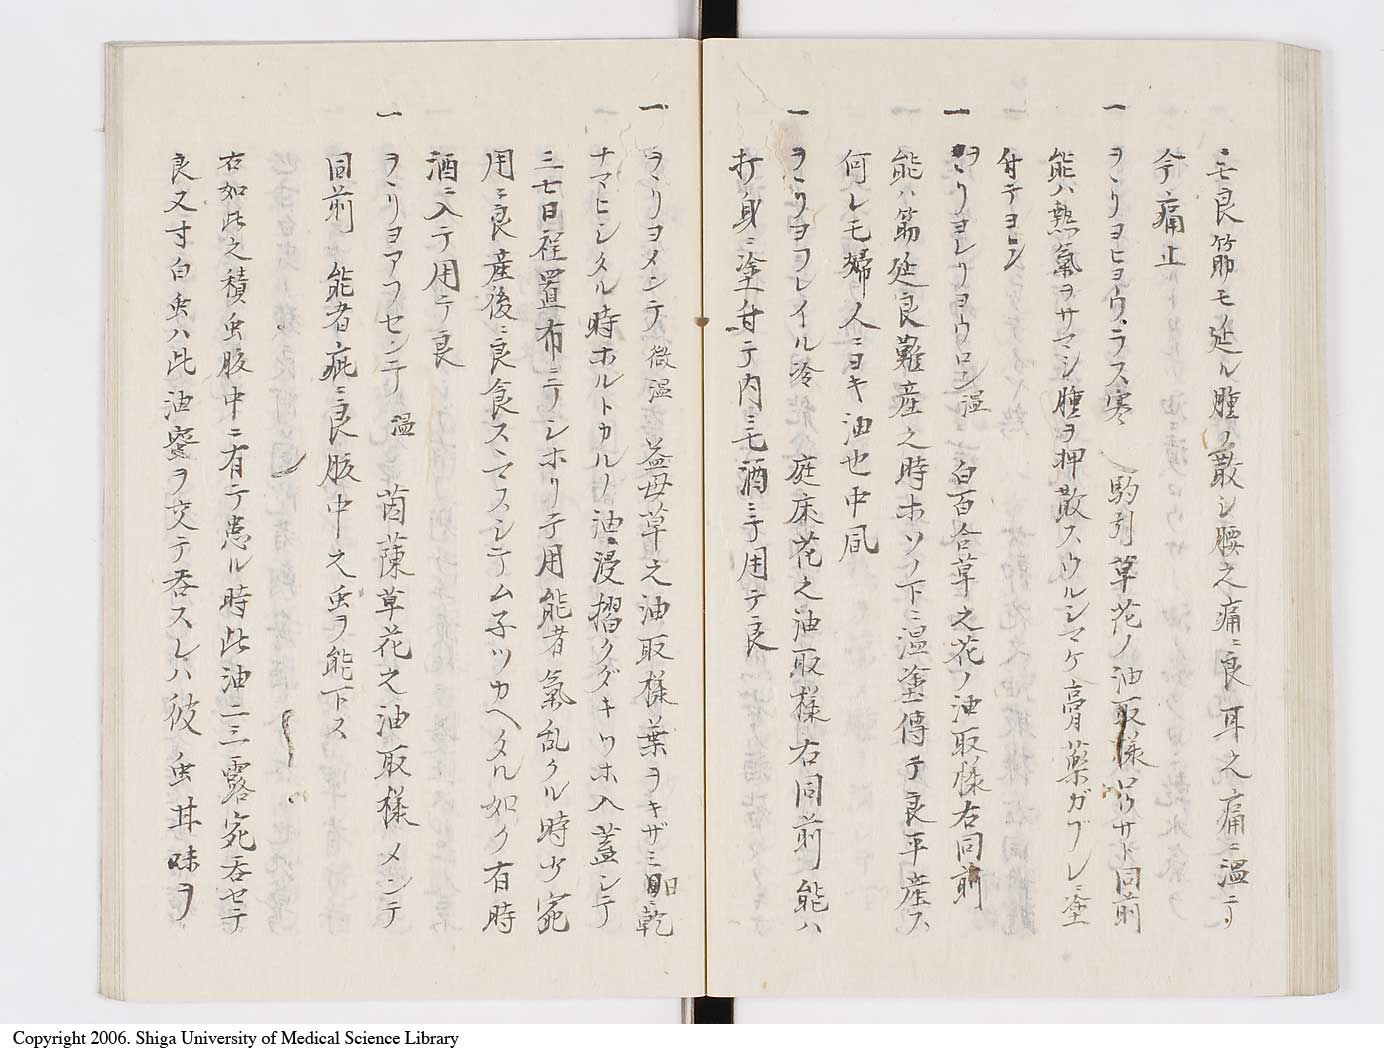 ニモ良筋モ延ル腫ノ散シ腰之痛ニ良耳之痛ニ温テ
今痛止
一 ヲヽリヨヒヨウラス寒 駒引草花ノ油取様ロウサト同前
能ハ熱氣ヲサマシ腫ヲ押散スウルシマケ膏藥ガブレニ塗
付テヨシ
一 ヲヽリヨレリヨウロン温 白百合草之花ノ油取様右同前
能ハ筋延良難産之時ホソノ下ニ温塗傳テ良平産ス
何レモ婦人ニヨキ油也中風
一 ヲヽリヨフレイル冷 庭床花之油取様右同前能ハ
打身ニ塗付テ内ニモ酒ニテ用テ良
一 ヲヽリヨメンテ微温 益母草之油取様葉ヲキザミ日ニ乾
ナマヒシタル時ホルトカルノ油浸摺クダキツホ入蓋シテ
三七日程置布ニテシホリテ用能者氣乱タル時少宛
用ニ良産後ニ良食スヽマスシテム子ツカヘタル如ク有時
酒ニ入テ用テ良
一 ヲヽリヨアフセンテ温 茵蔯草花之油取様メンテ
同前 能者疵ニ良胘中之虫ヲ能下ス
右如此之積虫胘中ニ有テ患ル時此油二三露宛呑セテ
良又寸白虫ハ此油蜜ヲ交テ呑スレハ彼虫其味ヲ
Copyright 2006. Shiga University of Medical Science Library